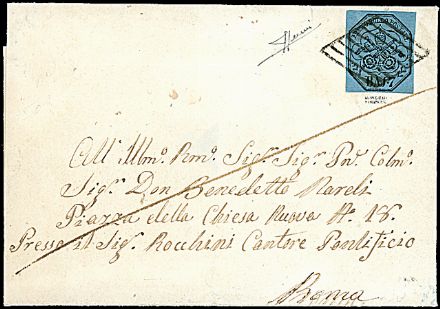 All' Illmo. Rmo. Sigr. Sigr. Pne. Colmo.
Sigr. Don Benedetto Nareli
Piazza della Chiesa Nuova No. 18.
Presso il Sigr. Rocchini Cantore Pontificio
Roma